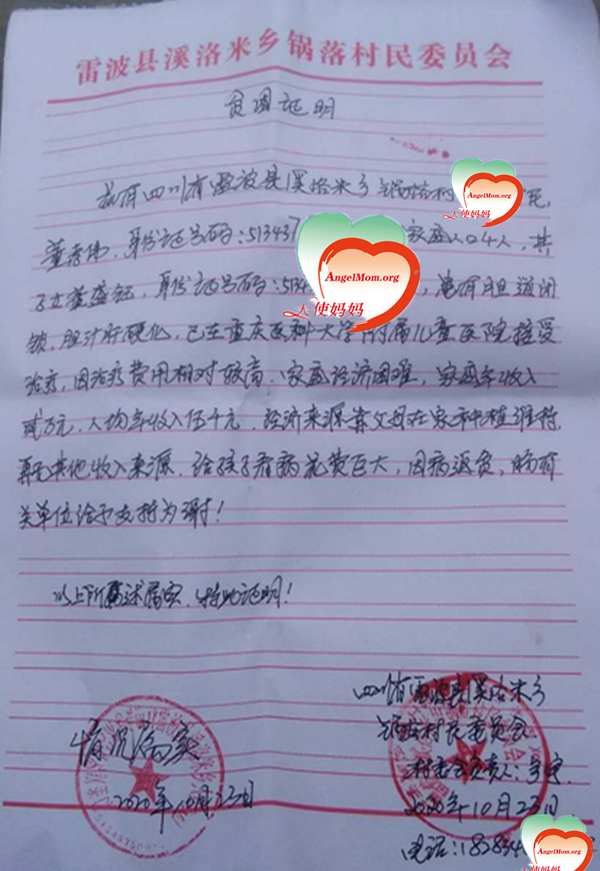 雷波县溪洛米乡锅落村民委员会
贫困证明
兹有四川省雷波县溪洛米乡锅落村
AngelMom.org
天使妈妈
身份证号码:51343 家庭人口4人,其
AngelMom.org
子董盛钰,身份证号码:5134 ,患有胆道闭
天使妈妈
锁,胆汁肝硬化,已在重庆医科大学附属儿童医院接受
治疗,因治疗费用相对较高,家庭经济困难,家庭年收入
贰万元,人均年收入伍千元,经济来源靠父母在家中种植维持
再无其他收入来源,给孩子看病花费巨大,因病返贫,盼有
关单位给予支持为谢!
以上所述属实,特此证明!
四川省雷波县溪洛米乡
锅落村民委员会
情况属实
村委会负责人:
2020年10月23日
2020年10月23日
电话:182834
AngelMom.org
天使妈妈